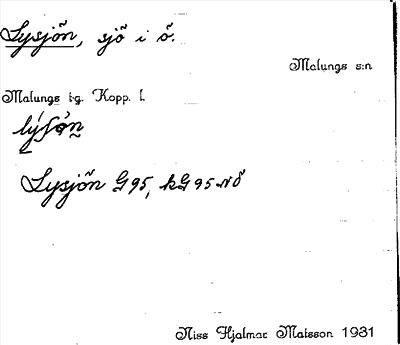 Lysjön, sjö i ö.
Malungs s:n
Malungs t.g. Kopp. l.
Lysjön G95, kG95 NÖ
Niss Hjalmar Matsson 1931